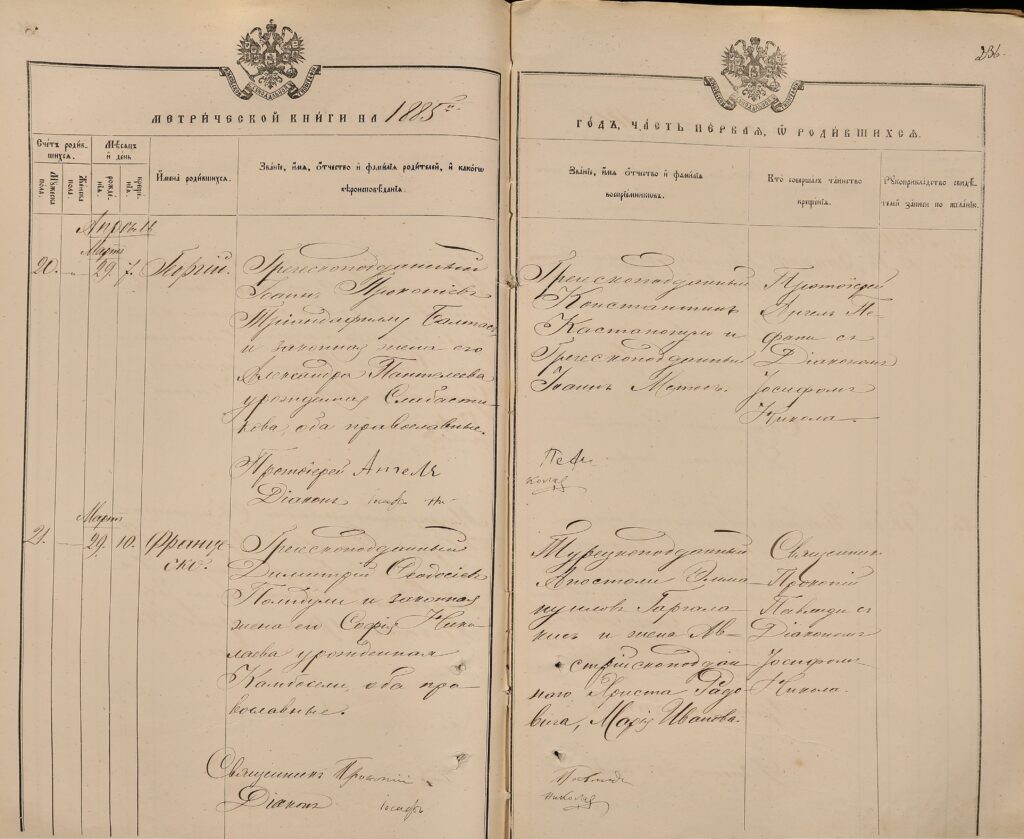 236.
МЕТРИ́ЧЕСКОЙ КНИ́ГИ НА 1885 г.
ГО́ДЪ, ЧАСТЬ ПЕ́РВАЯ, Ѡ РОДИ́ВШИХСЯ.
Счётъ роди́вшихся.
Му́жеска пола.
Же́нска пола.
Мѣ́сяцъ и́ день
рожде́нїѧ.
креще́нїѧ.
И́мена роди́вшихся.
Зва́нїе, и́мѧ, о́тчество и́ фами́лїѧ роди́телей, и́ како́гѡ
вѣроисповѣ́данїѧ.
Зва́нїе, и́мѧ о́тчество и́ фами́лїѧ
воспрїе́мниковъ.
Кто̀ соверша́лъ та́инство
креще́нїѧ.
Рꙋкоприкла́дство свидѣ́телей за́писи по жела́нїю.
Апрѣль
Мартъ
20. 29. 7. Георгій.
Греческоподданный
Іоаннъ
Тріандафилу Балтас
и законная жена его
Александра Пантелеева
урожденная Слабасти-
кова, оба православные.
Протоіерей Ангелъ
Діаконъ
Греческоподданный
Константинъ
и
Греческоподданный
Іоаннъ
Протоіерей
Ангелъ Пе-
фани съ
Діакономъ
Іосифомъ
Никола.
Мартъ
21. 29. 10. Франче-
ско.
Греческоподданный
Димитрій Ѳеодосіевъ
и законная
жена его Софія Нико-
лаева урожденная
Камбосели, оба пра-
вославные.
Священникъ Прокопій
Діаконъ іосифъ
Турецкоподданный
Апостоли Эмма-
нуиловъ Гаргала-
кисъ и жена Ав-
стрійскоподдан-
ного Христа Радо-
вича, Марія Иванова.
Священникъ
Прокопій
Павлиди съ
Діакономъ
Іосифомъ
Никола.